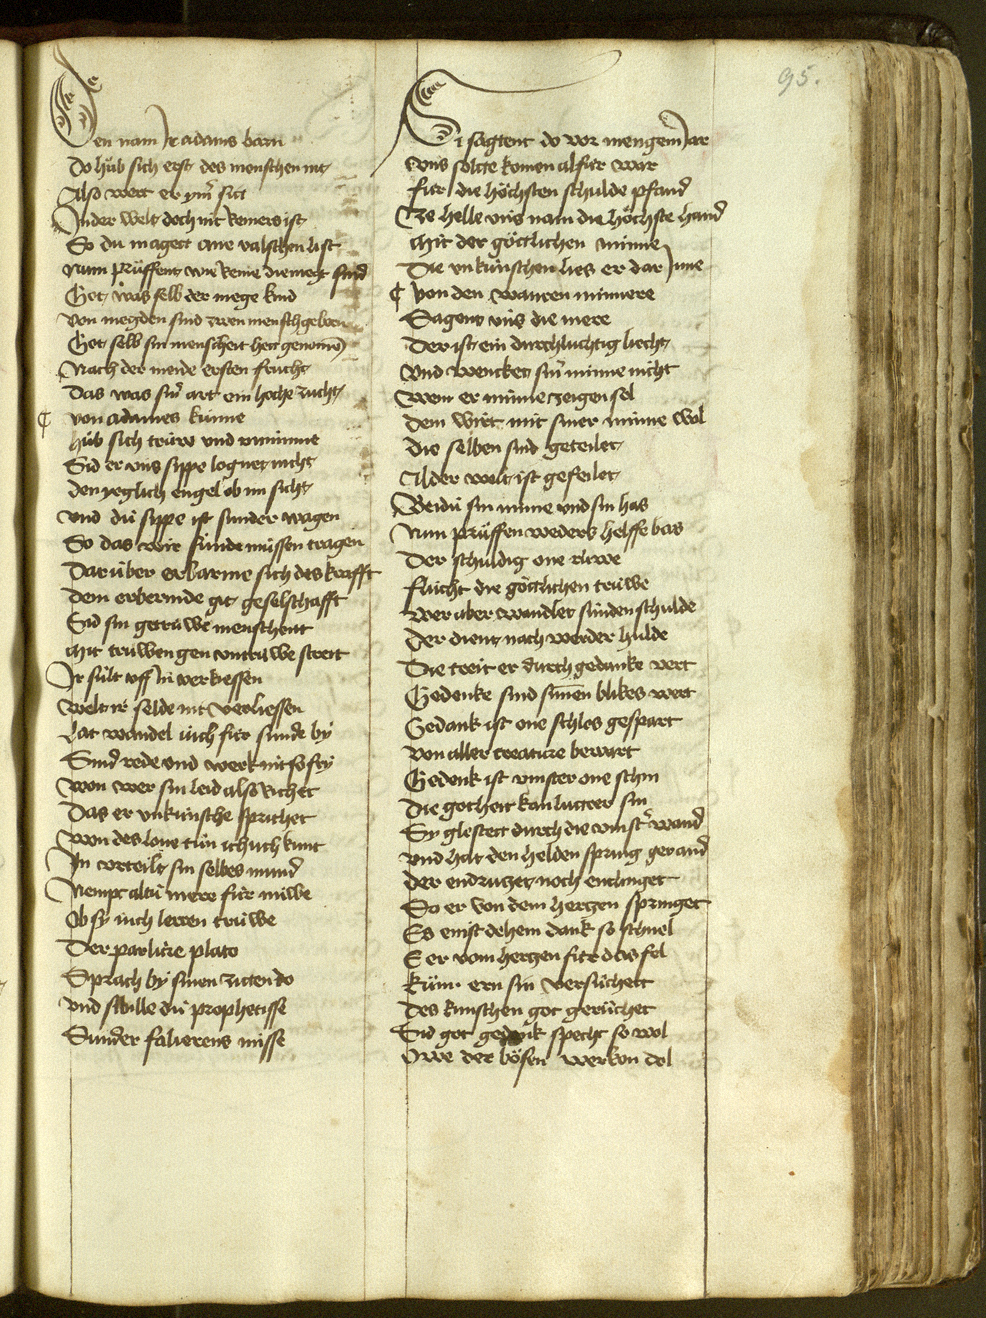 95.
Den nam Ir adams barn
Do hůb sich erst des menschen nit
Also wert er ym̄ sitt
In der welt doch nit reiners ist
So du magett ane valschen list
Nun prüffent wie reine die megt sind
Got was selb der mege kind
Von megden sind zwen mensch geborn
Got selb sin menscheit hett genomē
Nach der meide ersten frucht
Das was sin̄ art ein hoche zucht
¶ von adames kunne
hůb sich trüw und wunne
Sid er vns sippe lognet nicht
den yeglich engel ob im sicht
vnd dü sippe ist sunder wagen
So das wir sünde müssen tragen
Dar über erbarme sich des krafft
Dem erbermde git geselschafft
Sid sin getrüwe menscheitt
Mit trüwen gen vntrüwe streit
Ir sült vff In verkiessen
welt ir selde nit verliessen
Lat wandel üch für sünde by
Sind rede vnd werk nit so fry
Won wer sin leid also richet
Das er vnkünsche sprichet
Won des lone tůn ich üch kunt
In vrteilt sin selbes mund
Nempt altü mere für nüwe
Ob sy üch leren trüwe
Der parliere plato
Sprach by sinen zitten do
vnd sibille dü prophetisse
Sunder falierens misse
Si sagtent do vor mengem Jar
Vns solte komen alfür war
für die höchsten schulde pfand
Tze helle vns nam die höchste hand
Mit der göttlichen minne
Die vnkünschen lies er dar Inne
¶ Von den waren minnere
Sagent vns die mere
Der ist ein durchlüchtig liecht
Vnd wencket sin̄ minne nicht
Wem er minne zeigen sol
dem wirt mit siner minne wol
die selben sind geteilet
Al der welt ist gefeilet
Beidü sin minne vnd sin has
Nun prüffen weders helffe bas
Der schuldig one rüwe
flücht die göttlichen trüwe
Wer aber wandlet sünden schulde
Der dient nach werder hulde
Die treit er durch gedanke vert
Gedenke sind sūnen blikes wert
Gedank ist one schlos gespart
Von aller creature bewart
Gedenk ist vinster one schin
Die gotheit kan lutter sin
Sy glestett durch die vinst̄ wand
vnd hat den helden sprung gerand
der endrutzet noch enclinget
So er von dem hertzen springet
Es enist dehein dank so schnel
E er vom hertzen für das fel
Küm ern sin versüchett
Des künschen got gerüchet
Sid got gedank specht so wol
Owe der bösen werkon dol